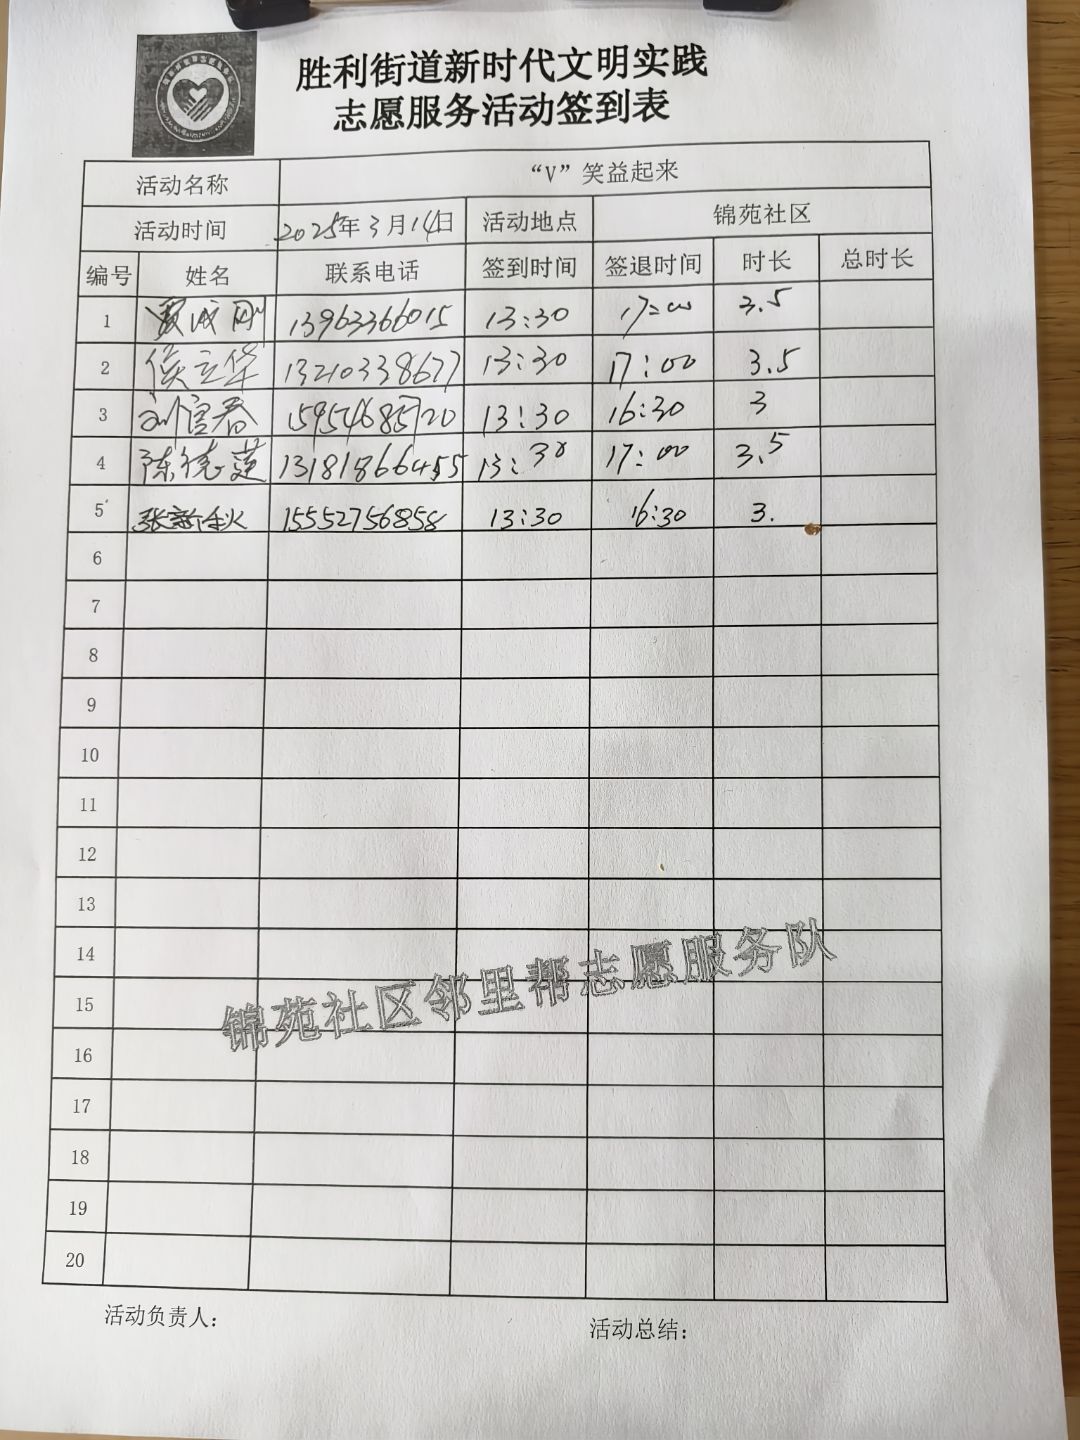 胜利街道新时代文明实践
志愿服务活动签到表
活动名称 “V”笑益起来
活动时间 2025年3月14日 活动地点 锦苑社区
编号 姓名 联系电话 签到时间 签退时间 时长 总时长
1 贾成刚 13963366015 13:30 17:00 3.5
2 侯立华 13210338677 13:30 17:00 3.5
3 刘富春 15954685720 13:30 16:30 3
4 陈德莲 13181866455 13:30 17:00 3.5
5 张新秋 15552756858 13:30 16:30 3.
6
7
8
9
10
11
12
13
14
锦苑社区邻里帮志愿服务队
15
16
17
18
19
20
活动负责人：
活动总结：